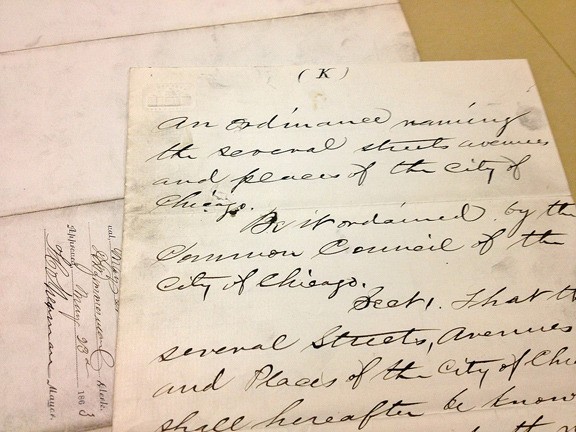 ( K )
An ordinance naming
the several streets avenues
and places of the city of
Chicago.
Be it ordained by the
Common Council of the
City of Chicago.
Sect 1. That th
several Streets, Avenues
and Places of the City of Chi
shall hereafter be know
May
Clerk
Approved May 28 1863
Mayor.